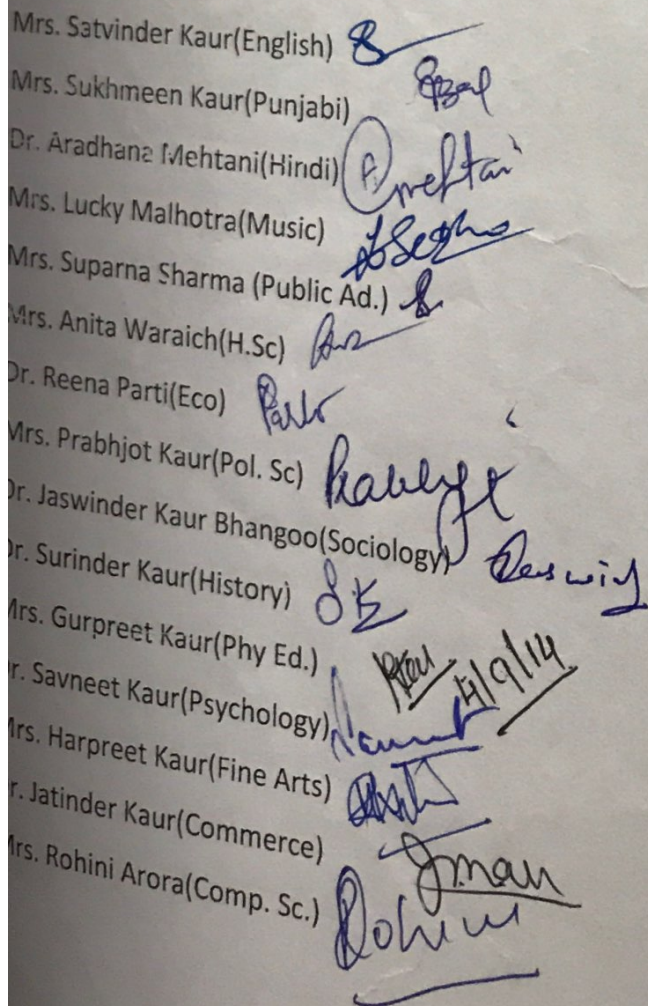 Mrs. Satvinder Kaur(English)
Mrs. Sukhmeen Kaur(Punjabi)
Dr. Aradhana Mehtani(Hindi) Mehtani
Mrs. Lucky Malhotra(Music)
Mrs. Suparna Sharma (Public Ad.)
Mrs. Anita Waraich(H.Sc)
Dr. Reena Parti(Eco)
Mrs. Prabhjot Kaur(Pol. Sc) Prabhjot
Dr. Jaswinder Kaur Bhangoo(Sociology)
Dr. Surinder Kaur(History) SK
Mrs. Gurpreet Kaur(Phy Ed.) 4/9/14
r. Savneet Kaur(Psychology)
Mrs. Harpreet Kaur(Fine Arts)
r. Jatinder Kaur(Commerce)
Mrs. Rohini Arora(Comp. Sc.) Rohini